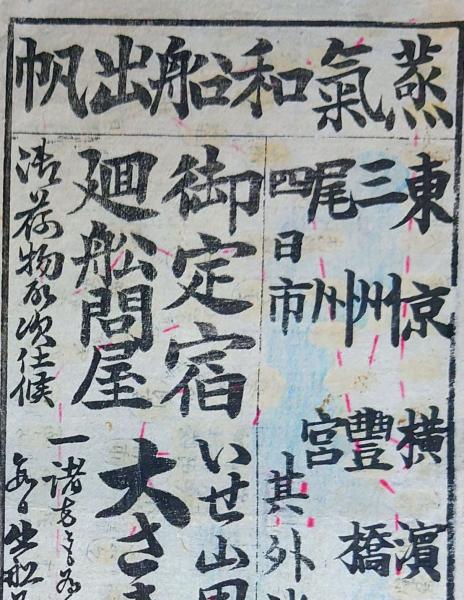 蒸氣和船出帆
東京横濱
三州豐橋
尾州宮
四日市其外
御定宿いせ山田
廻船問屋大さ
御荷物取次仕候
一諸方
毎日出船